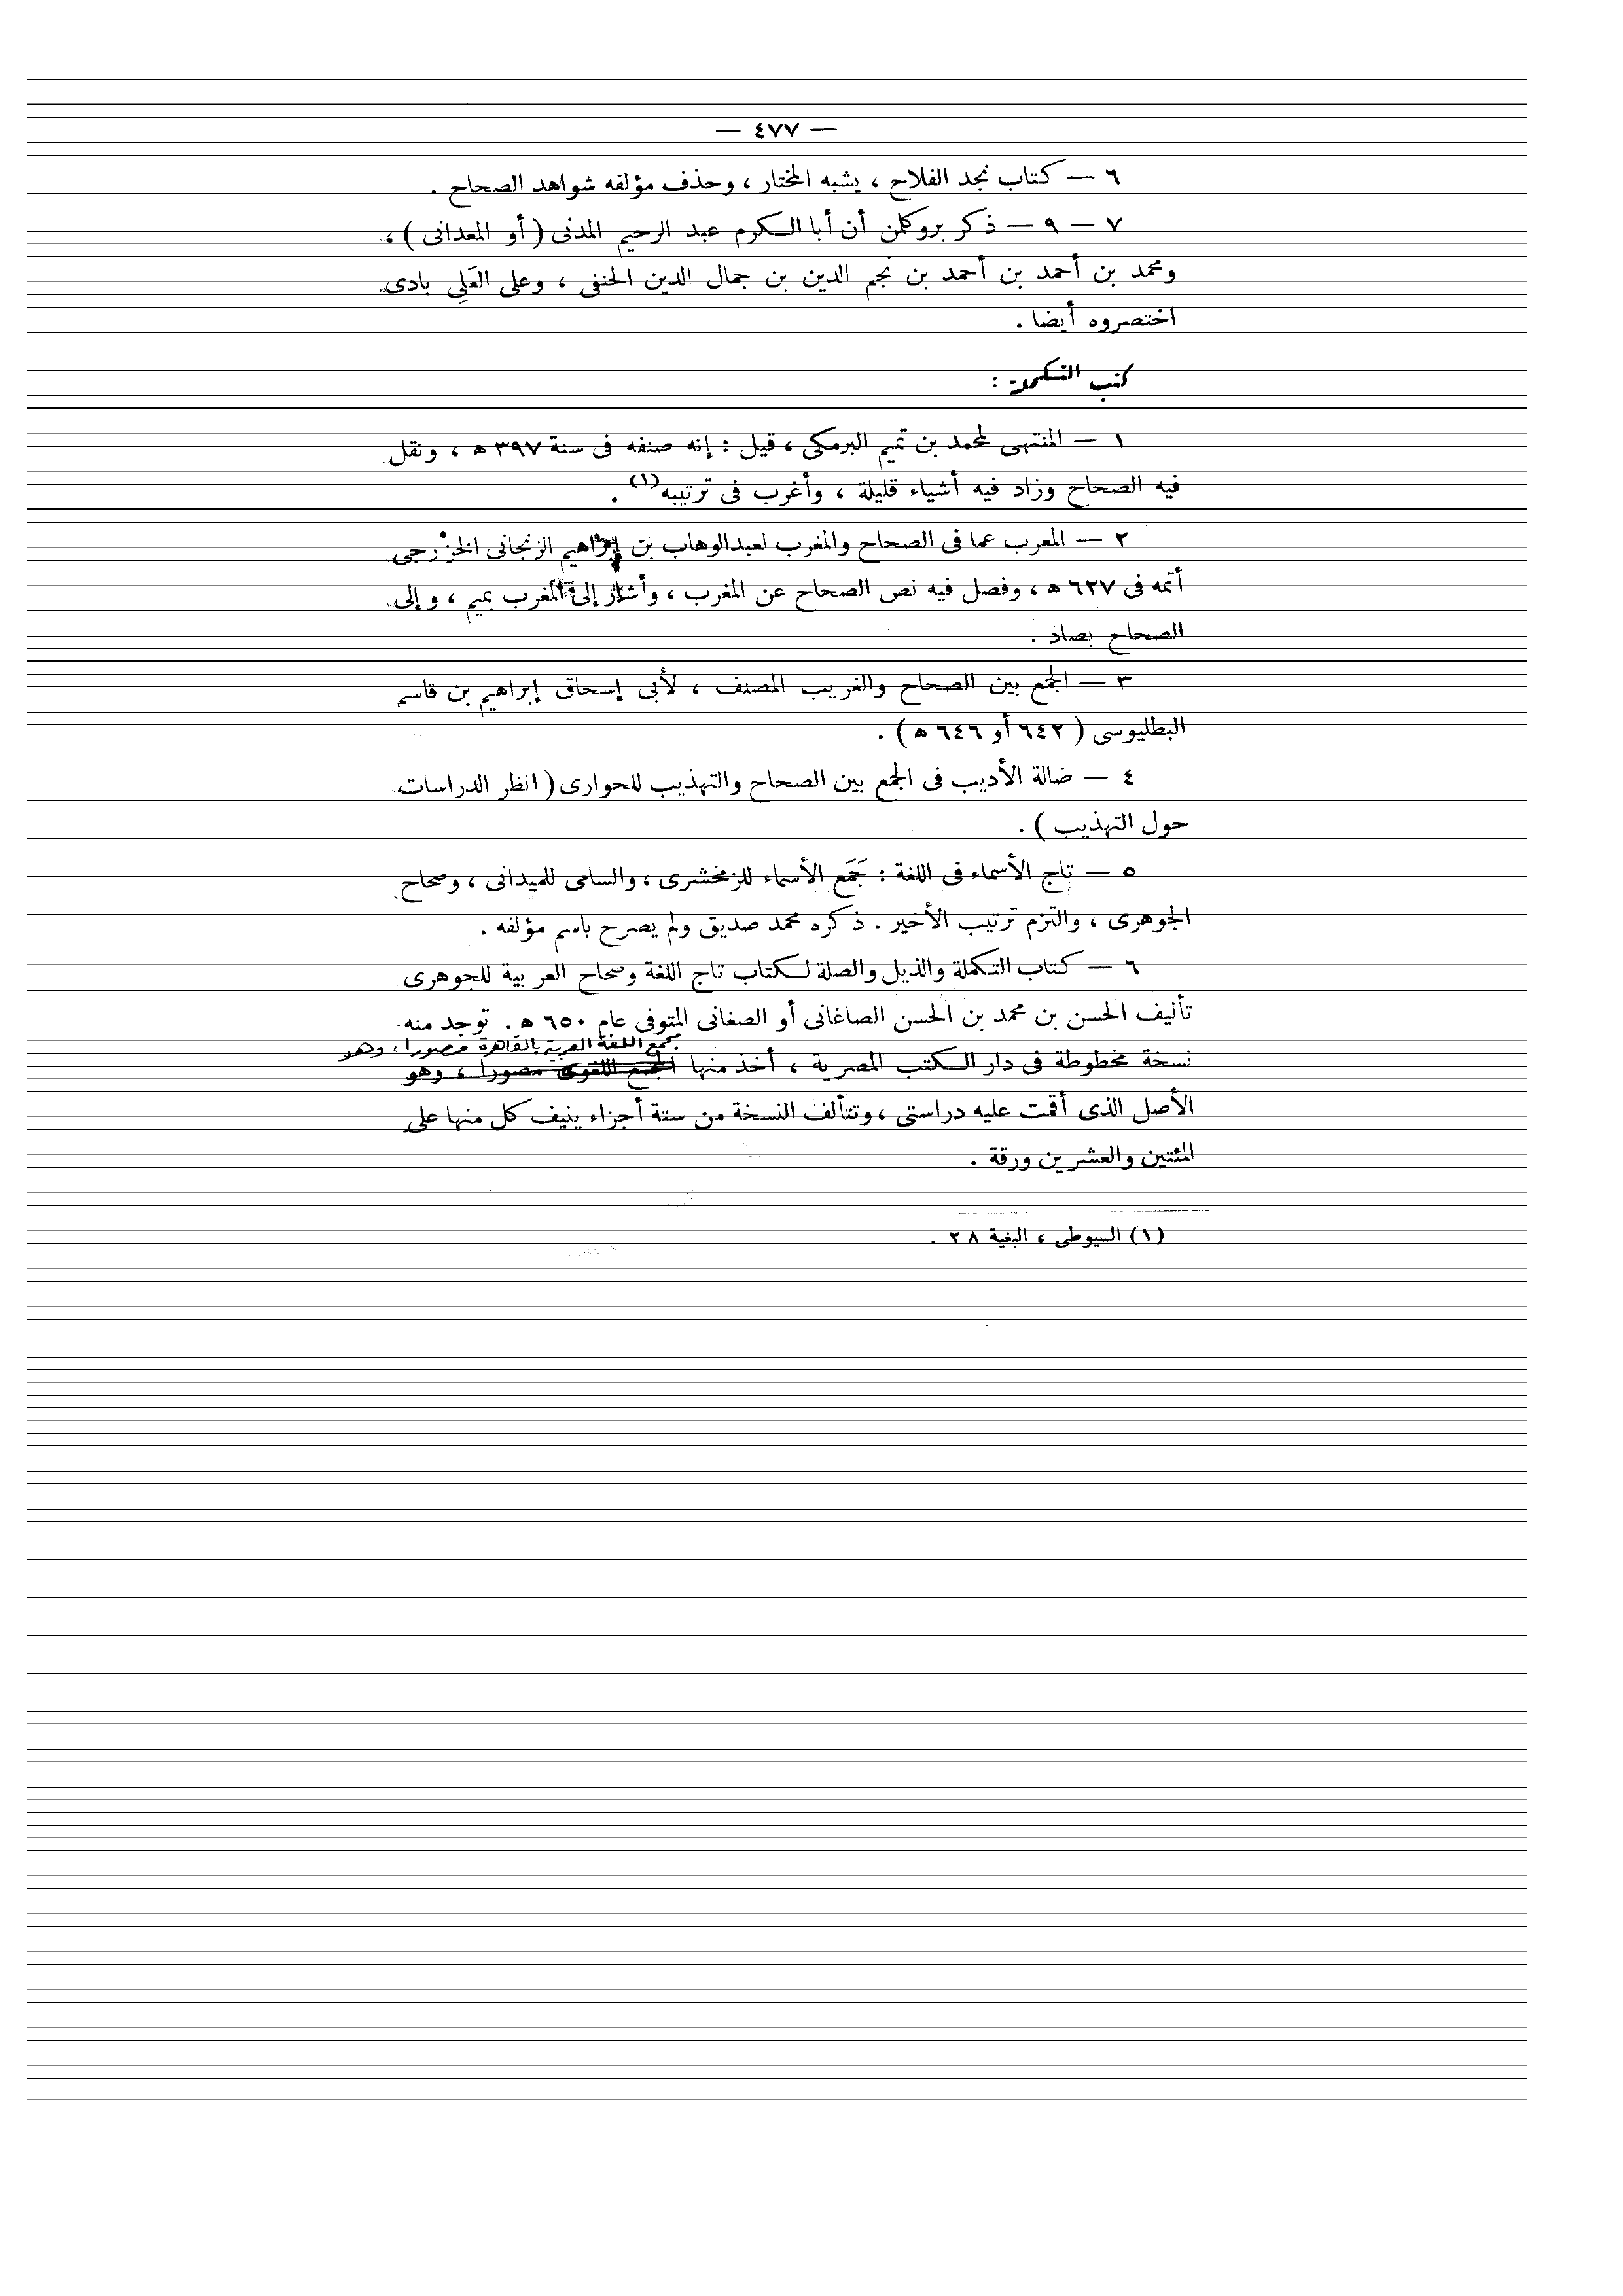 — ٤٧٧ —
٦ — كتاب نجد الفلاح ، يشبه المختار ، وحذف مؤلفه شواهد الصحاح .
٧ — ٩ — ذكر بروكلمن أن أبا الكرم عبد الرحيم المدنى ( أو المعدانى ) ،
ومحمد بن أحمد بن أحمد بن نجم الدين بن جمال الدين الحنفى ، وعلى العَلِى بادى
اختصروه أيضا .
كتب التكملة :
١ — المنتهى لمحمد بن تميم البرمكى ، قيل : إنه صنفه فى سنة ٣٩٧ ه ، ونقل
فيه الصحاح وزاد فيه أشياء قليلة ، وأغرب فى ترتيبه (١) .
٢ — المعرب عما فى الصحاح والمغرب لعبدالوهاب بن إبراهيم الزنجانى الخزرجى
أتمه فى ٦٢٧ ه ، وفصل فيه نص الصحاح عن المغرب ، وأشار إلى المغرب بميم ، وإلى
الصحاح بصاد .
٣ — الجمع بين الصحاح والغريب المصنف ، لأبى إسحاق إبراهيم بن قاسم
البطليوسى ( ٦٤٢ أو ٦٤٦ ه ) .
٤ — ضالة الأديب فى الجمع بين الصحاح والتهذيب للحوارى ( انظر الدراسات
حول التهذيب ) .
٥ — تاج الأسماء فى اللغة : جَمَع الأسماء للزمخشرى ، والسامى للميدانى ، وصحاح
الجوهرى ، والتزم ترتيب الأخير . ذكره محمد صديق ولم يصرح باسم مؤلفه .
٦ — كتاب التكملة والذيل والصلة لكتاب تاج اللغة وصحاح العربية للجوهرى
تأليف الحسن بن محمد بن الحسن الصاغانى أو الصغانى المتوفى عام ٦٥٠ ه . توجد منه
مجمع اللغة العربية بالقاهرة مصورا ، وهو
نسخة مخطوطة فى دار الكتب المصرية ، أخذ منها المجمع اللغوى مصورا ، وهو
الأصل الذى أقمت عليه دراستى ، وتتألف النسخة من ستة أجزاء ينيف كل منها على
المئتين والعشرين ورقة .
(١) السيوطى ، البغية ٢٨ .